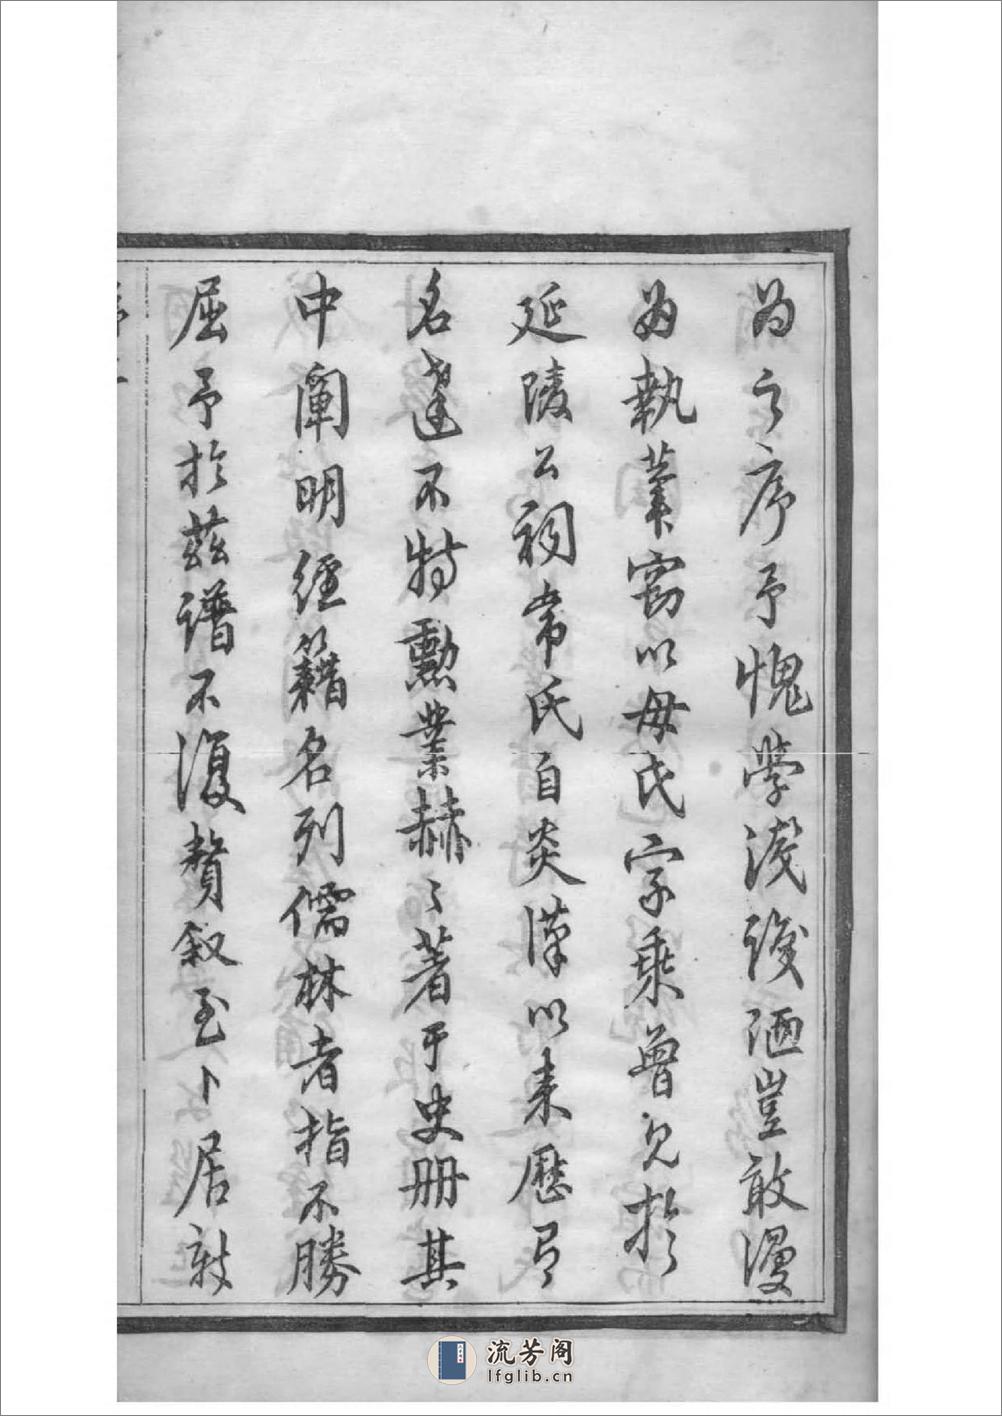 为之序予愧學淺陋豈敢漫
为執筆竊以母氏家乘曾見於
延陵公祠常氏自炎漢以來歷有
名達不特勳業赫〻著于史冊其
中闡明經籍名列儒林者指不勝
屈予於茲譜不復贅叙至卜居新
流芳阁
lfglib.cn